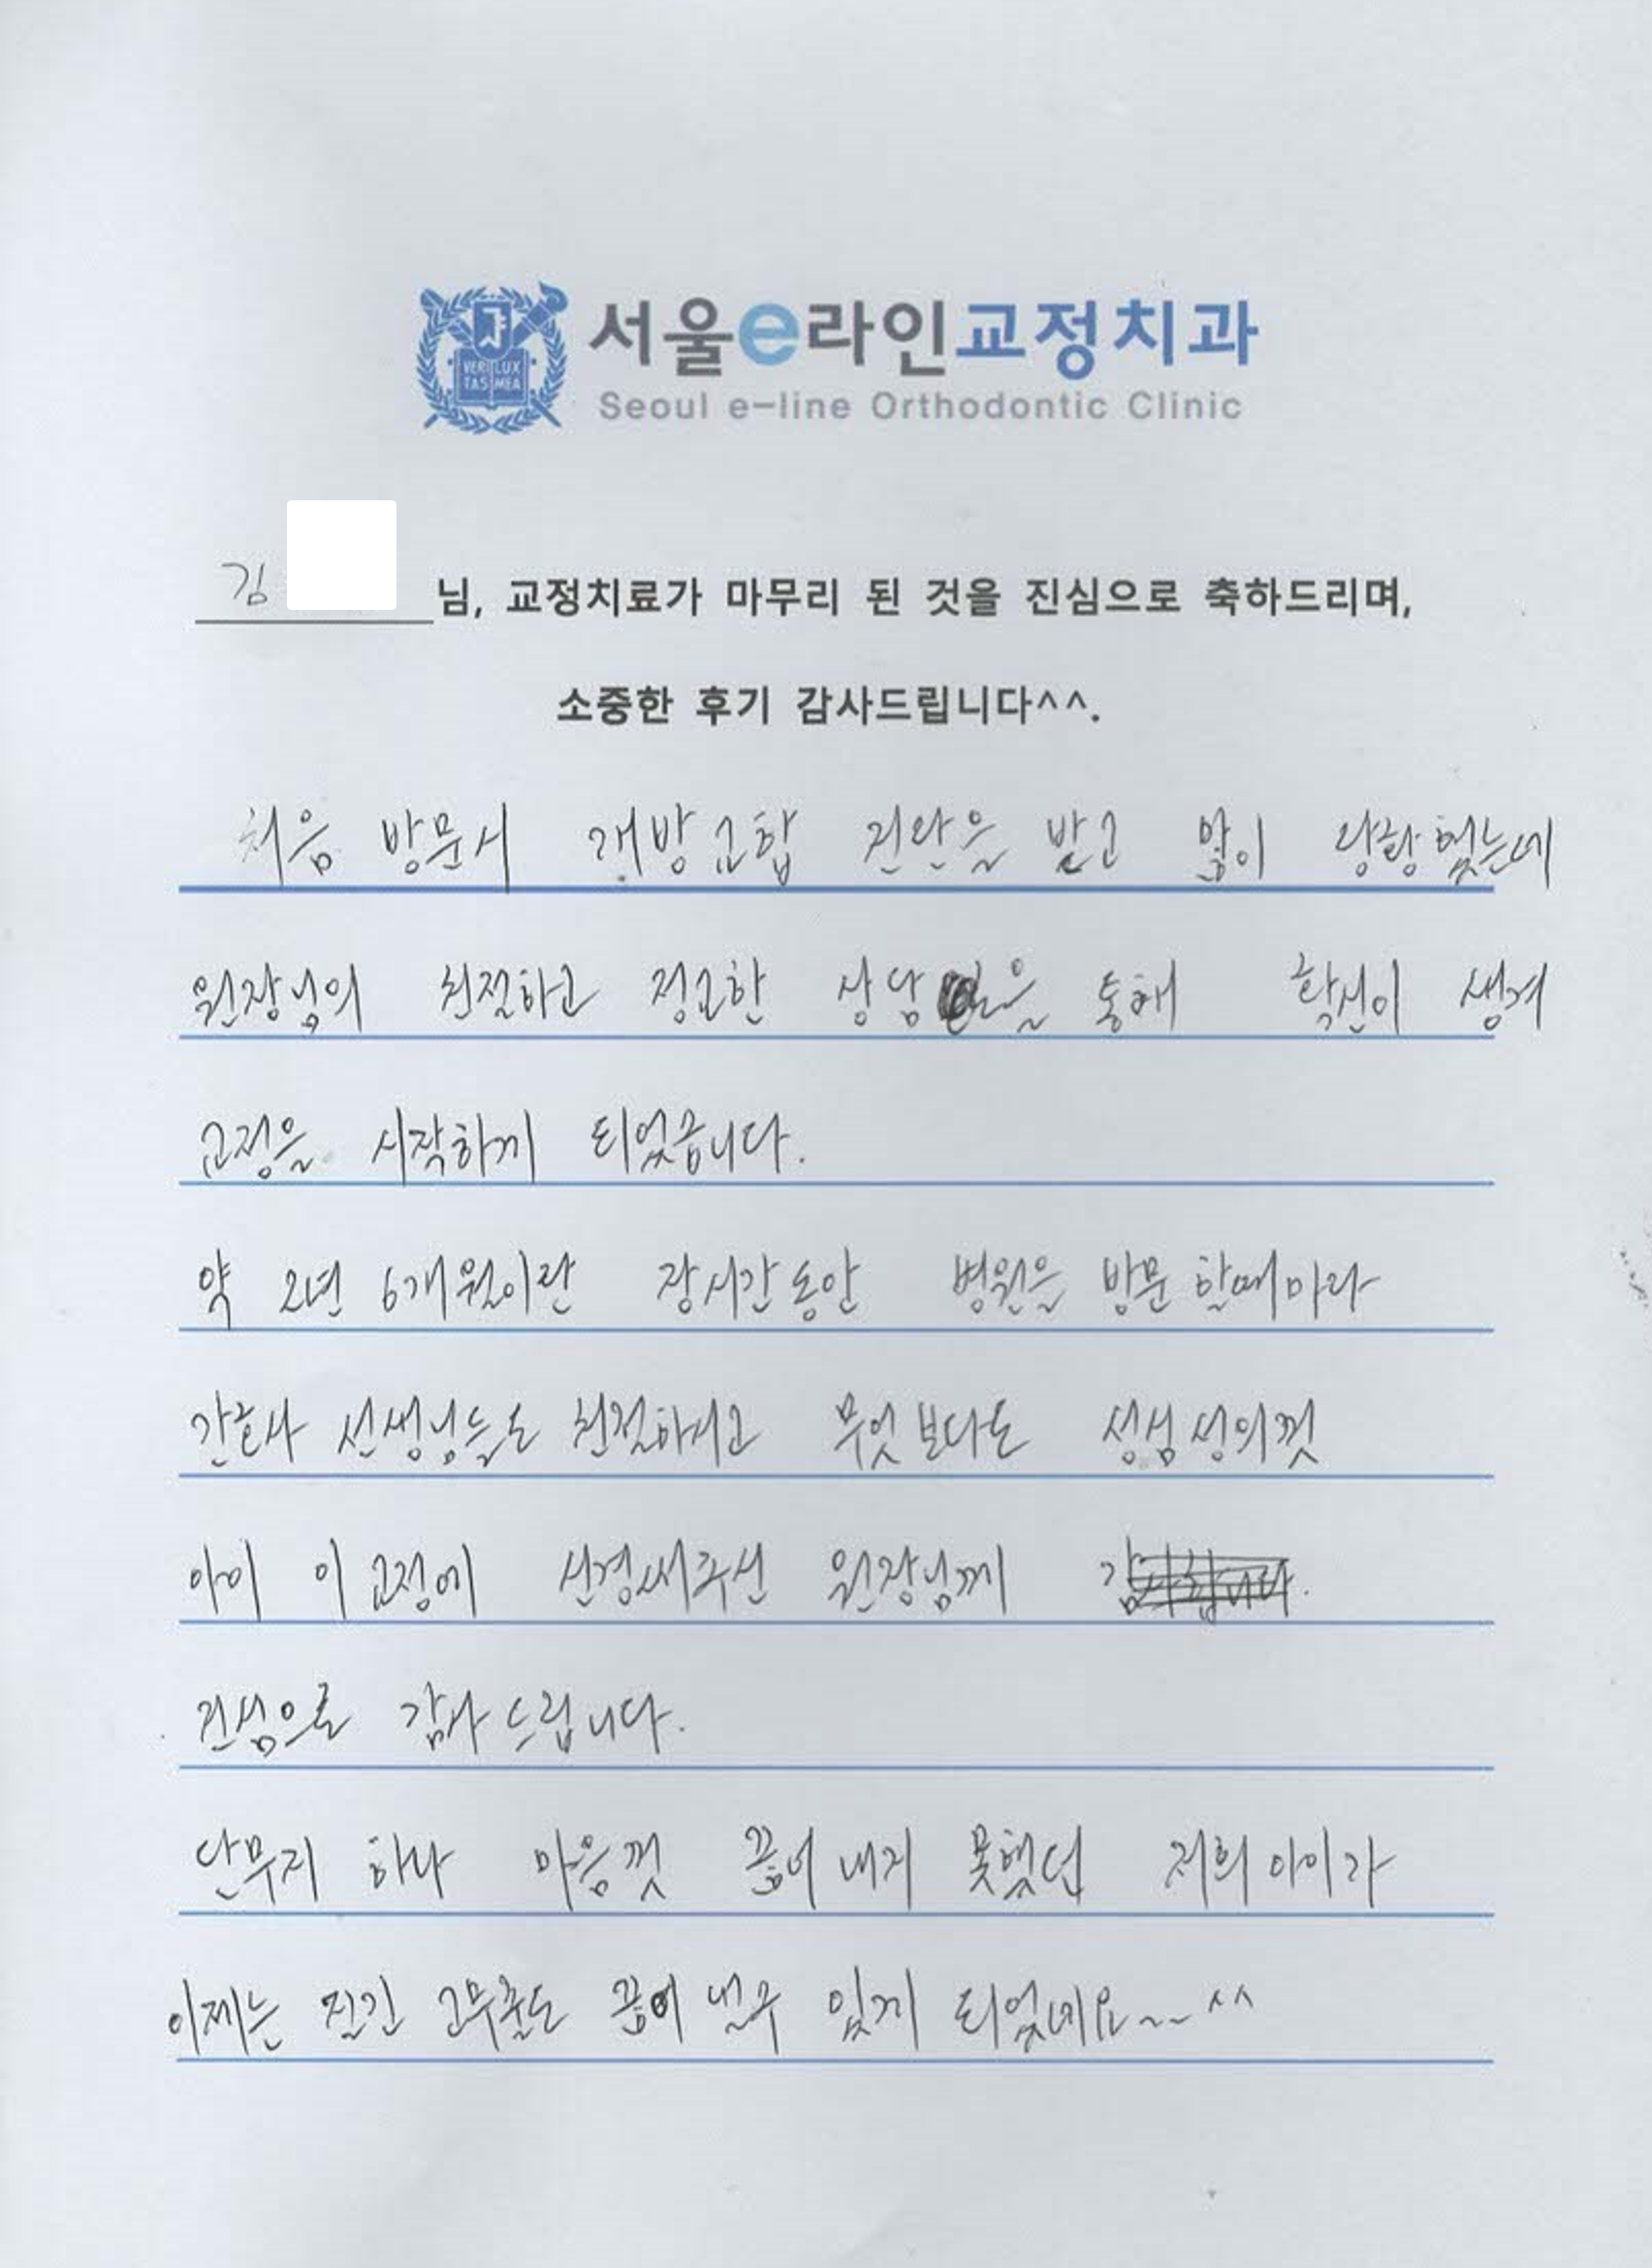 VERI LUX
TAS MEA
서울e라인교정치과
Seoul e-line Orthodontic Clinic
김 님, 교정치료가 마무리 된 것을 진심으로 축하드리며,
소중한 후기 감사드립니다^^.
처음 방문시 개방교합 진단을 받고 많이 당황했는데
원장님의 친절하고 정교한 상담을 통해 확신이 생겨
교정을 시작하게 되었습니다.
약 2년 6개월이란 장시간동안 병원을 방문 할때마다
간호사 선생님들도 친절하시고 무엇보다도 성심성의껏
아이 이 교정에 신경써주신 원장님께 감사합니다.
진심으로 감사드립니다.
단무지 하나 마음껏 끊어내지 못했던 저희 아이가
이제는 질긴 고무줄도 끊어 낼수 있게 되었네요~~ ^^